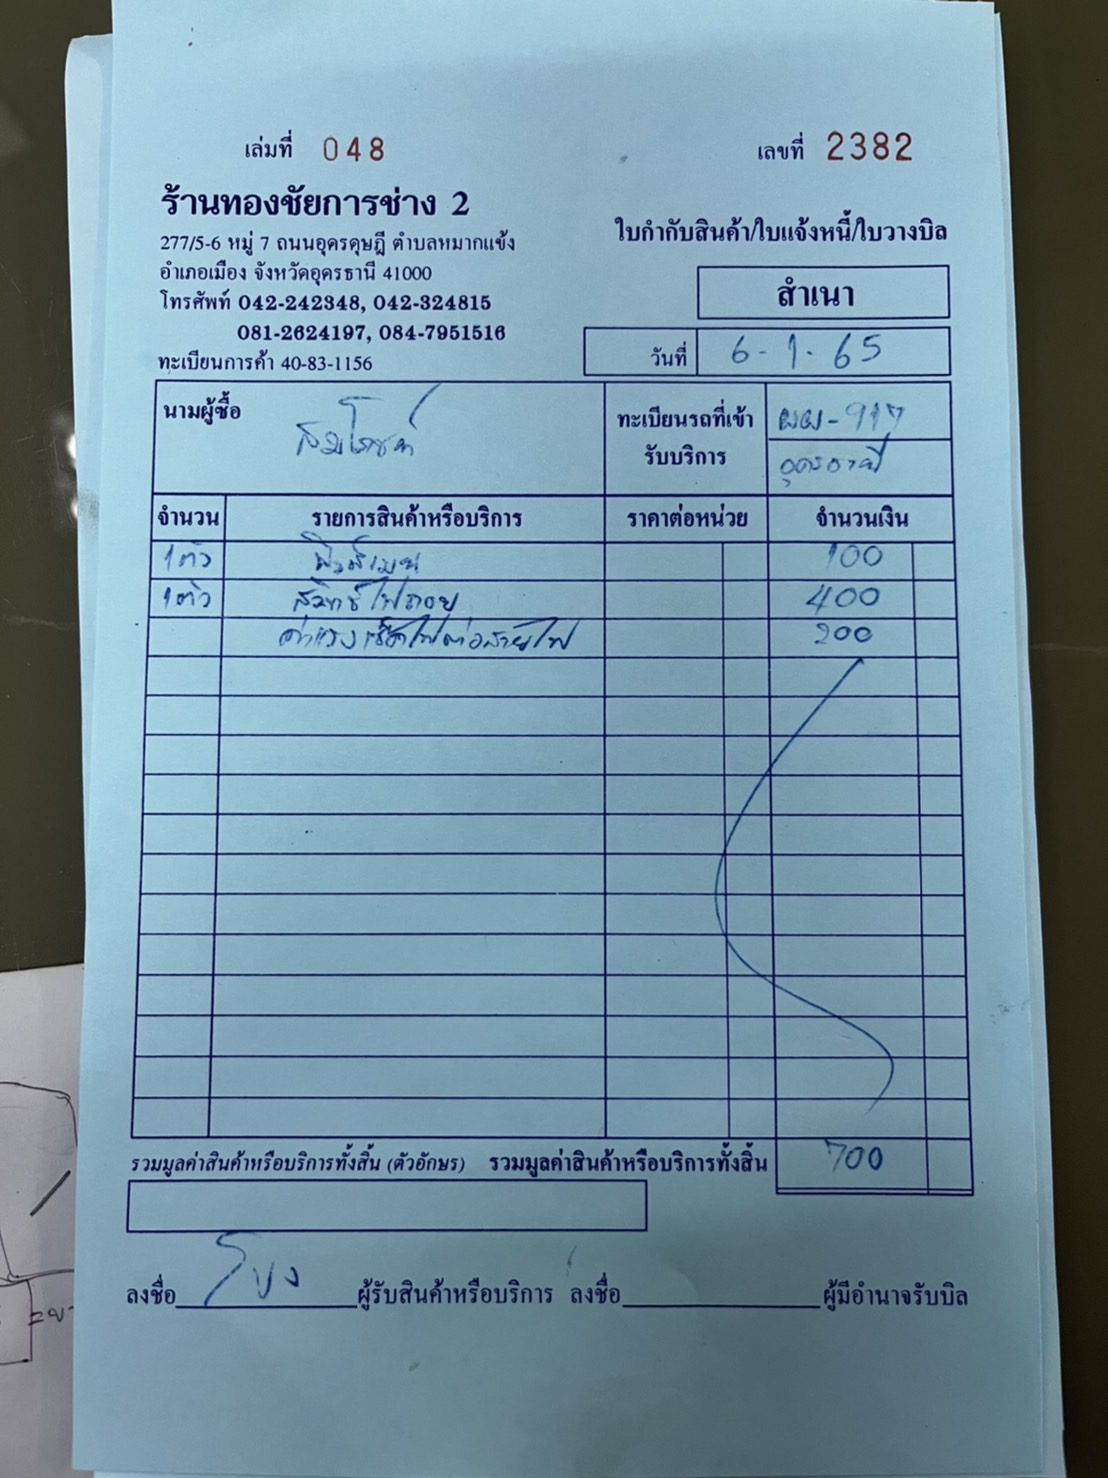 เล่มที่ 048
เลขที่ 2382
ร้านทองชัยการช่าง 2
277/5-6 หมู่ 7 ถนนอุดรดุษฎี ตำบลหมากแข้ง
อำเภอเมือง จังหวัดอุดรธานี 41000
โทรศัพท์ 042-242348, 042-324815
081-2624197, 084-7951516
ทะเบียนการค้า 40-83-1156
ใบกำกับสินค้า/ใบแจ้งหนี้/ใบวางบิล
สำเนา
วันที่ 6-1-65
นามผู้ซื้อ สมโภชน์
ทะเบียนรถที่เข้ารับบริการ ผผ-917
อุดรธานี
จำนวน รายการสินค้าหรือบริการ ราคาต่อหน่วย จำนวนเงิน
1 ตัว ฟิวส์เมน 100
1 ตัว สวิทช์ไฟถอย 400
ค่าแรงเช็คไฟต่อสายไฟ 200
รวมมูลค่าสินค้าหรือบริการทั้งสิ้น (ตัวอักษร) รวมมูลค่าสินค้าหรือบริการทั้งสิ้น 700
ลงชื่อ ผู้รับสินค้าหรือบริการ ลงชื่อ ผู้มีอำนาจรับบิล